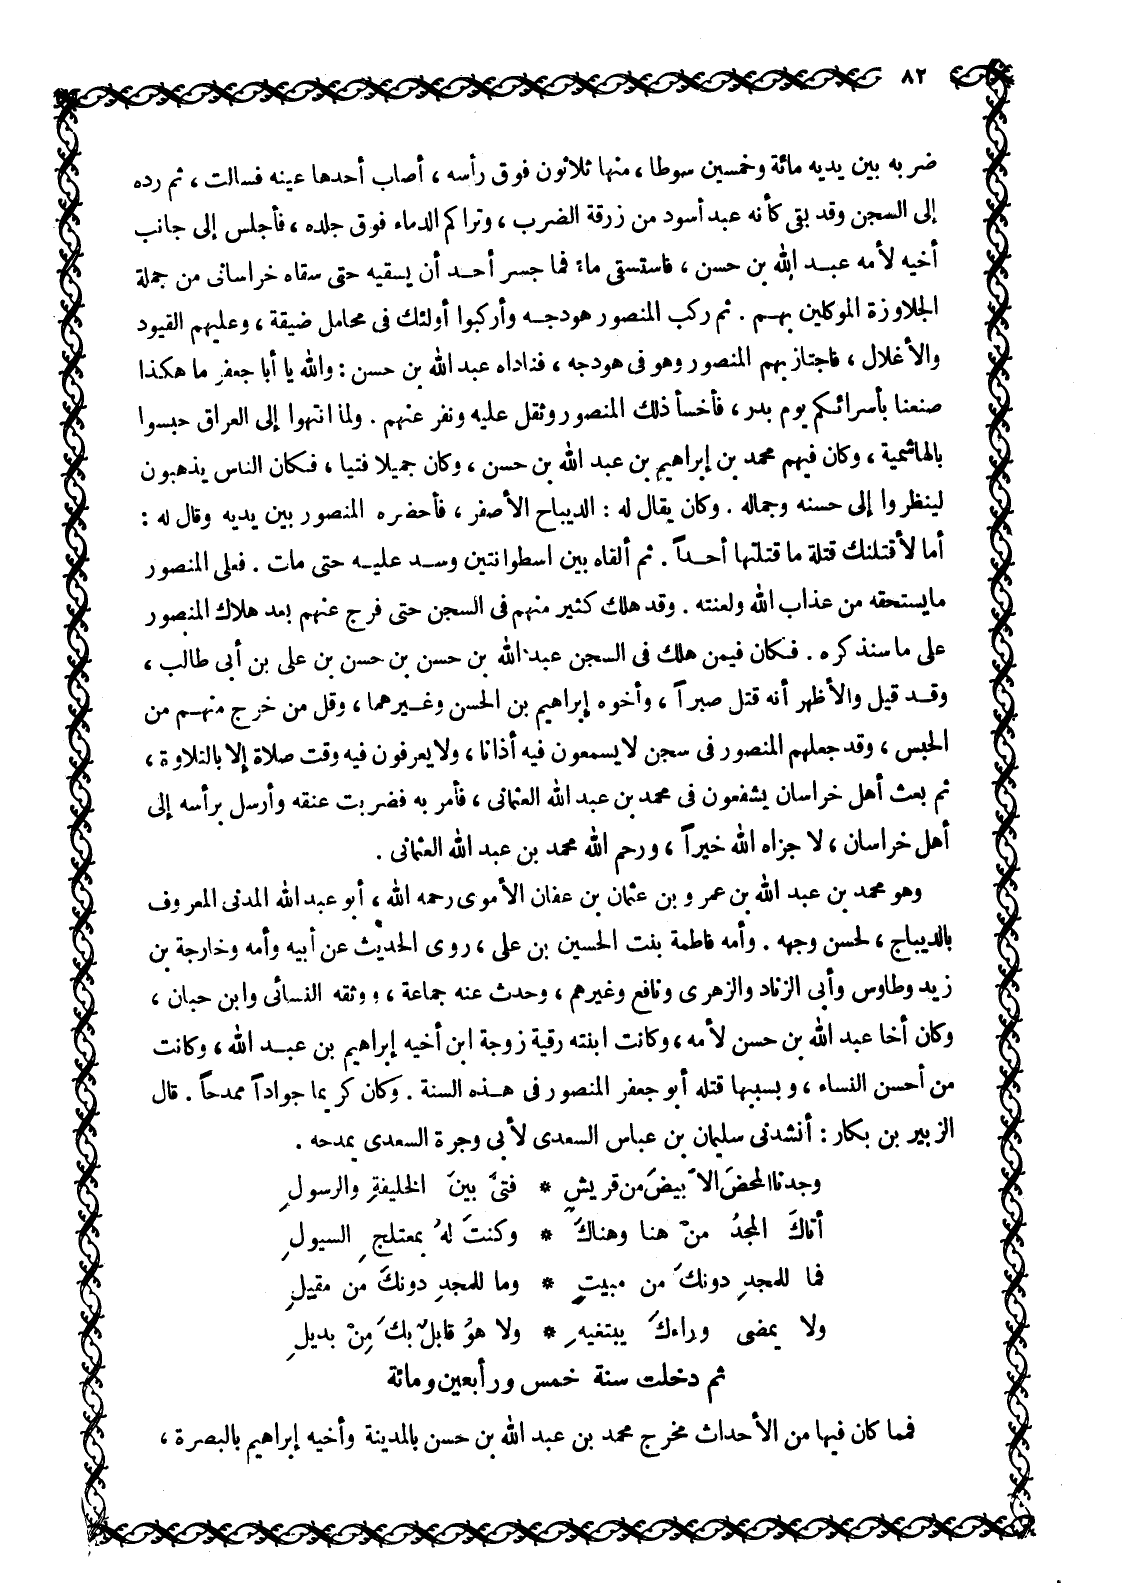 ٨٢
ضربه بين يديه مائة وخمسين سوطا ، منها ثلاثون فوق رأسه ، أصاب أحدها عينه فسالت ، ثم رده
إلى السجن وقد بقى كأنه عبد أسود من زرقة الضرب ، وتراكم الدماء فوق جلده ، فأجلس إلى جانب
أخيه لأمه عبد الله بن حسن ، فاستسقى ماء فما جسر أحد أن يسقيه حتى سقاه خراسانى من جملة
الجلاوزة الموكلين بهم . ثم ركب المنصور هودجه وأركبوا أولئك فى محامل ضيقة ، وعليهم القيود
والأغلال ، فاجتاز بهم المنصور وهو فى هودجه ، فناداه عبد الله بن حسن : والله يا أبا جعفر ما هكذا
صنعنا بأسرائكم يوم بدر ، فأخسأ ذلك المنصور وثقل عليه ونفر عنهم . ولما انتهوا إلى العراق حبسوا
بالهاشمية ، وكان فيهم محمد بن إبراهيم بن عبد الله بن حسن ، وكان جميلا فتيا ، فكان الناس يذهبون
لينظروا إلى حسنه وجماله . وكان يقال له : الديباج الأصفر ، فأحضره المنصور بين يديه وقال له :
أما لأقتلنك قتلة ما قتلتها أحداً . ثم ألقاه بين اسطوانتين وسد عليه حتى مات . فعلى المنصور
ما يستحقه من عذاب الله ولعنته . وقد هلك كثير منهم فى السجن حتى فرج عنهم بعد هلاك المنصور
على ما سنذكره . فكان فيمن هلك فى السجن عبد الله بن حسن بن حسن بن على بن أبى طالب ،
وقد قيل والأظهر أنه قتل صبراً ، وأخوه إبراهيم بن الحسن وغيرهما ، وقل من خرج منهم من
الحبس ، وقد جعلهم المنصور فى سجن لا يسمعون فيه أذانا ، ولا يعرفون فيه وقت صلاة إلا بالتلاوة ،
ثم بعث أهل خراسان يشفعون فى محمد بن عبد الله العثمانى ، فأمر به فضربت عنقه وأرسل برأسه إلى
أهل خراسان ، لا جزاه الله خيراً ، ورحم الله محمد بن عبد الله العثمانى .
وهو محمد بن عبد الله بن عمرو بن عثمان بن عفان الأموى رحمه الله ، أبو عبد الله المدنى المعروف
بالديباج ، لحسن وجهه . وأمه فاطمة بنت الحسين بن على ، روى الحديث عن أبيه وأمه وخارجة بن
زيد وطاوس وأبى الزناد والزهرى ونافع وغيرهم ، وحدث عنه جماعة ، ووثقه النسائى وابن حبان ،
وكان أخا عبد الله بن حسن لأمه ، وكانت ابنته رقية زوجة ابن أخيه إبراهيم بن عبد الله ، وكانت
من أحسن النساء ، وبسببها قتله أبو جعفر المنصور فى هذه السنة . وكان كريما جواداً ممدحاً . قال
الزبير بن بكار : أنشدنى سليمان بن عباس السعدى لأبى وجرة السعدى يمدحه .
وجدنا المحضَ الأبيضَ من قريشٍ * فتىً بينَ الخليفةِ والرسولِ
أتاكَ المجدُ منْ هنا وهناكَ * وكنتَ لهُ بمعتلجِ السيولِ
فما للمجدِ دونكَ من مبيتٍ * وما للمجدِ دونكَ من مقيلِ
ولا يمضى وراءكَ يبتغيهِ * ولا هوُ قابلٌ بكَ مِنْ بديلِ
ثم دخلت سنة خمس ورأبعين ومائة
فمما كان فيها من الأحداث مخرج محمد بن عبد الله بن حسن بالمدينة وأخيه إبراهيم بالبصرة ،